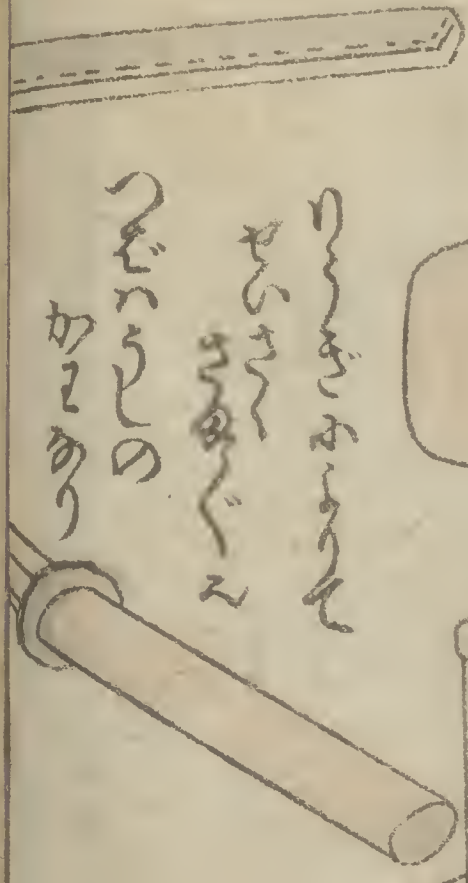 りうぎによりて
せいさく
さま〲
つばハうしの
かわなり